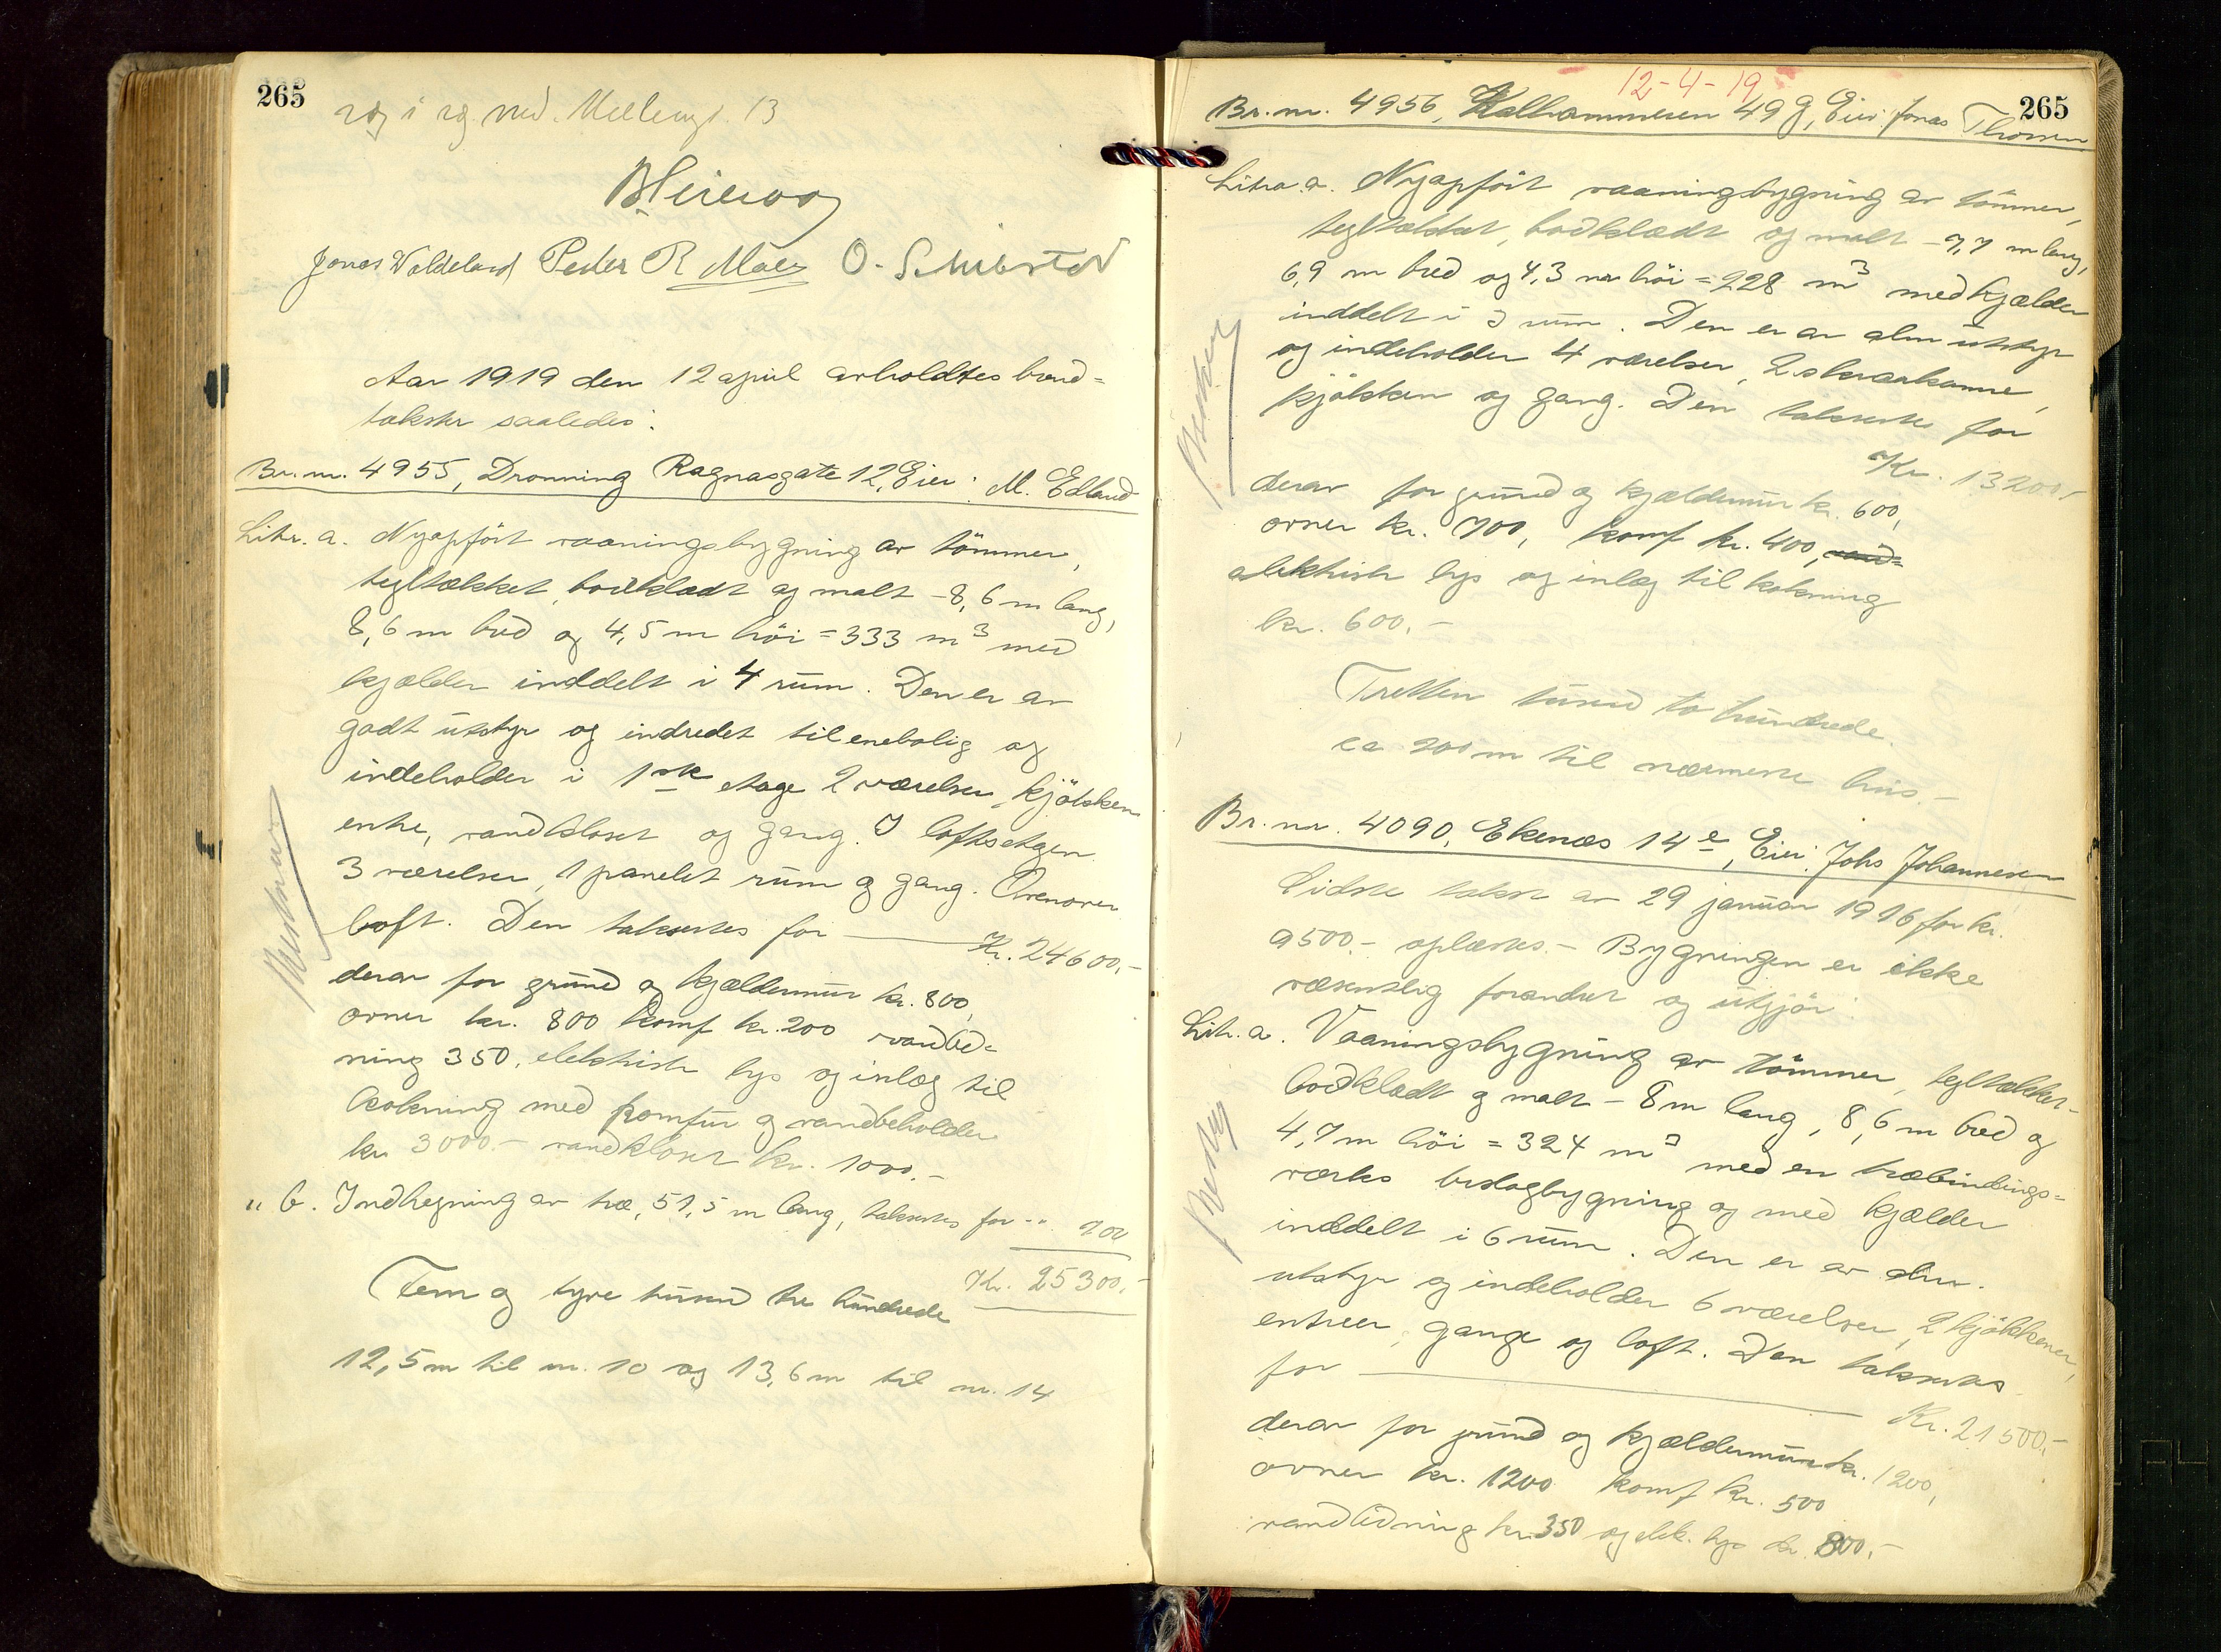 265
og i og med. 13
Jonas Waldeland Peder R Moe O.
Aar 1919 den 12 april avholdtes brand=
takster saaledes:
Br. nr. 4955, Dronning Ragnasgate 12, Eier: M. Edland
Litr. a. Nyopført vaaningsbygning av tömmer,
tegltækket, bordklædt og malt - 8,6 m lang,
8,6 m bred og 4,5 m höi = 333 m3 med
kjælder inddelt i 4 rum. Den er av
godt utstyr og indredet til enebolig og
indeholder i 1ste etage 2 værelser, kjökken
entre, vandkloset og gang. I loftsetagen
3 værelser, 1 panelet rum og gang. Ovenover
loft. Den takseres for Kr. 24600.-
derav for grund og kjældermur kr. 800,
ovner kr. 800 komf kr. 200 vandled=
ning 350, elektrisk lys og inlæg til
kokning med komfur og vandbeholder
kr 3000.- vandkloset kr. 1000.-
" b. Indhegning av træ, 51,5 m lang, takseres for - " 700
Kr. 25300.-
Fem og tyve tusind tre hundrede
12,5 m til nr. 10 og 13,6 m til nr. 14
12-4-19
265
Br. nr. 4956, Kalhammeren 49 g, Eier: Jonas Thorsen
Litra a. Nyopført vaaningsbygning av tömmer,
tegltækket, bordklædt og malt - 7,7 m lang,
6,9 m bred og 4,3 m höi = 228 m3 med kjælder
inddelt i 3 rum. Den er av alm utstyr
og indeholder 4 værelser, 2 skraakamre,
kjökken og gang. Den takseres for
Kr. 13200.-
derav for grund og kjældermur kr. 600,
ovner kr. 700, komf kr. 400,
elektrisk lys og inlæg til kokning
kr. 600.-
Tretten tusind to hundrede.
ca 200 m til nærmeste hus.-
Br. nr. 4090, Ekenæs 14 e, Eier: Johs Johannesen
Sidste takst av 29 januar 1916 for kr.
9500.- oplæstes.- Bygningen er ikke
væsentlig forandret og utgjör:
Litr. a. Vaaningsbygning av tömmer, tegltækket-
bordklædt og malt - 8 m lang, 8,6 m bred og
4,7 m höi = 324 m3 med en træbindings=
verks bislagbygning og med kjælder
inddelt i 6 rum. Den er av alm.
utstyr og indeholder 6 værelser, 2 kjökkener,
entreer, gange og loft. Den takseres
for Kr. 21500.-
derav for grund og kjældermur kr. 1200,
ovner kr. 1200 komf kr. 500
vandledning kr. 350 og elek. lys kr. 800.-